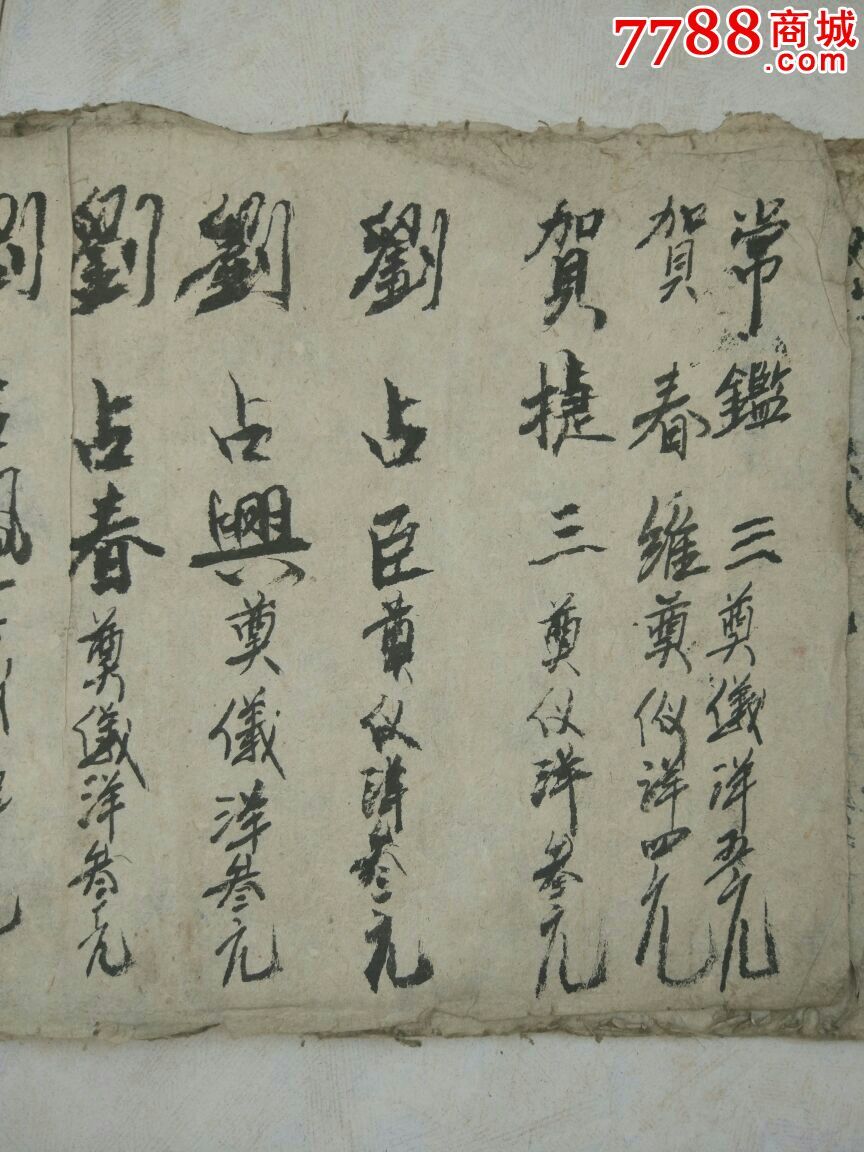 7788商城
.com
常鑑三奠儀洋五元
賀春維奠仪洋四元
賀捷三奠仪洋叁元
劉占臣奠仪洋叁元
劉占興奠儀洋叁元
劉占春奠儀洋叁元
劉占